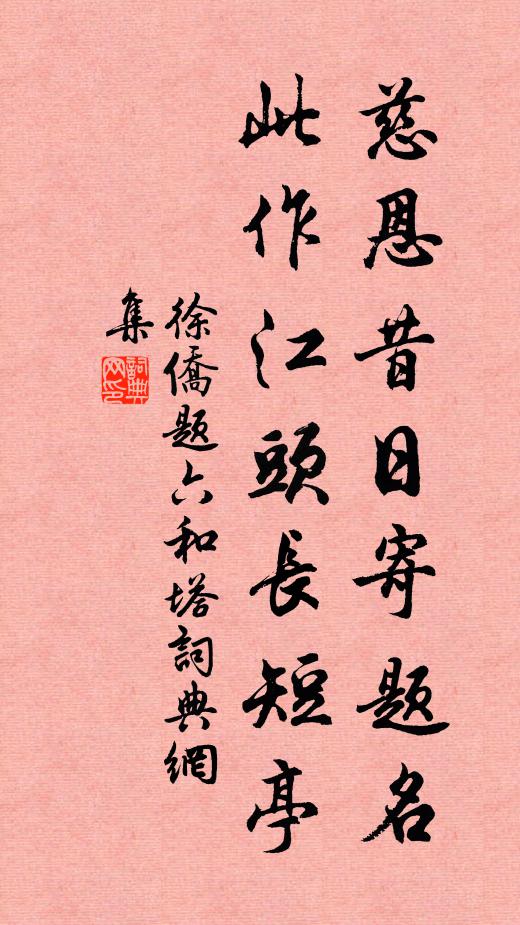 慈恩昔日寄题名
此作江頭長短亭
徐僑題六和塔詞典網
集
詞典
网印